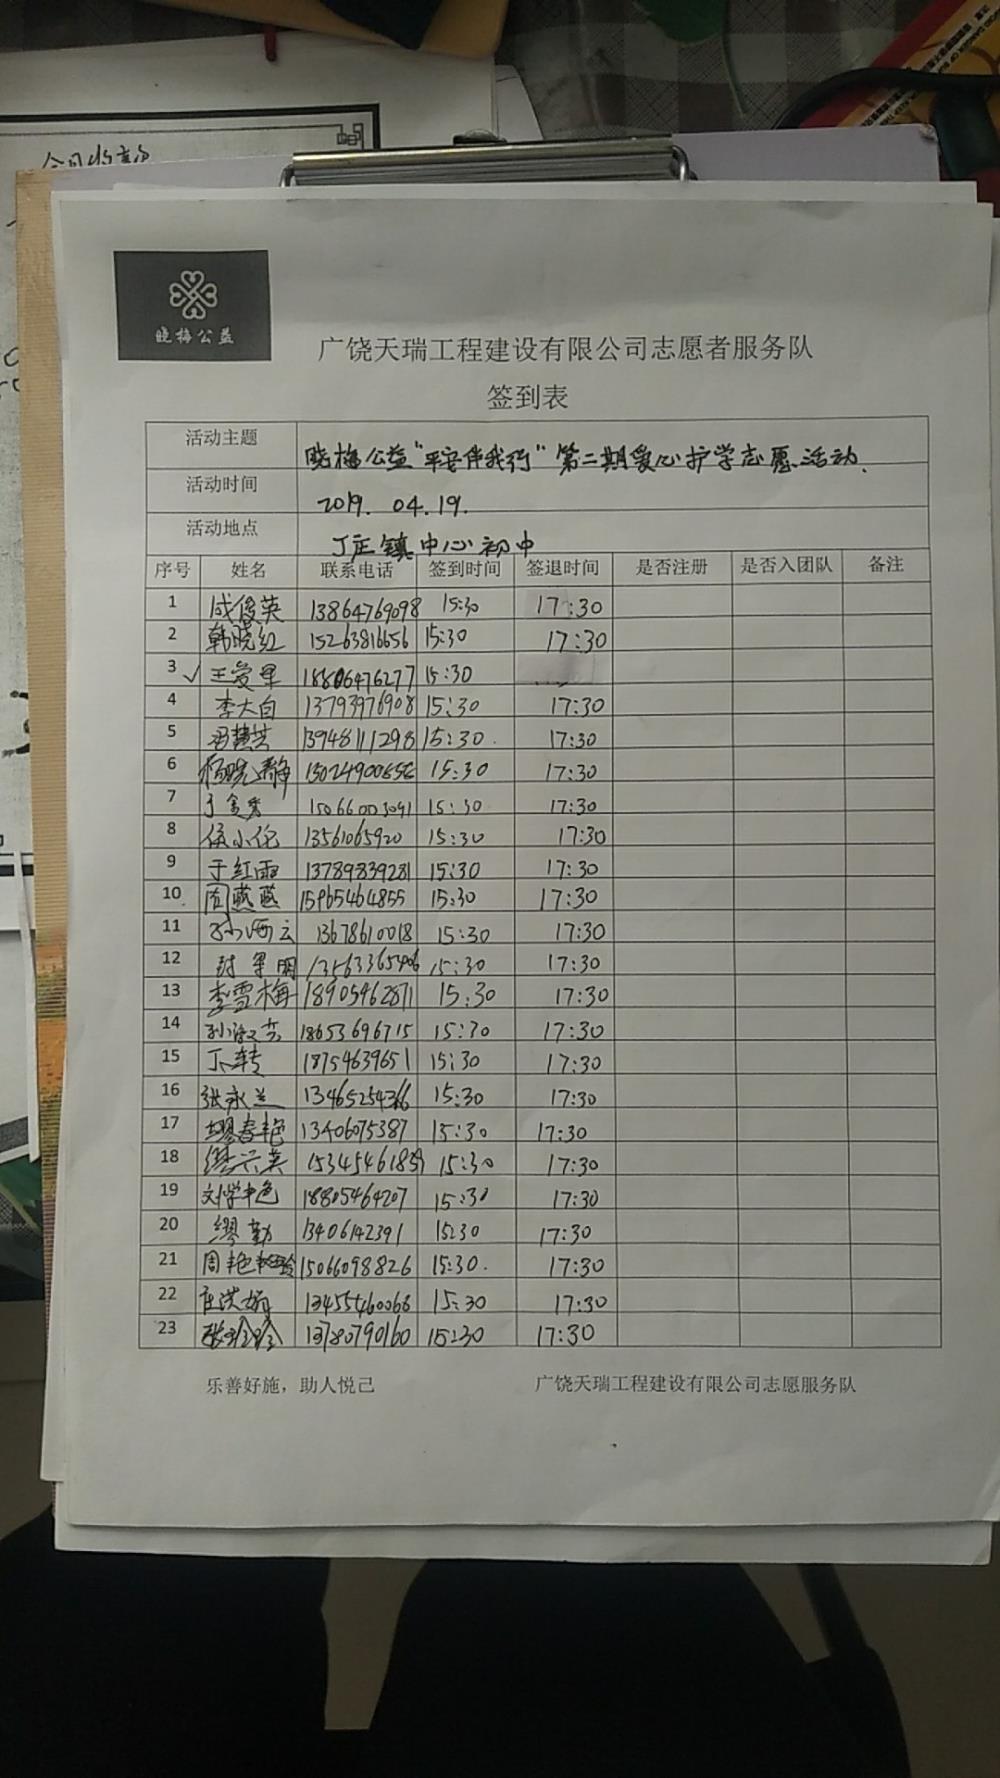 晓梅公益
广饶天瑞工程建设有限公司志愿者服务队
签到表
活动主题 晓梅公益"平安伴我行"第二期爱心护学志愿活动.
活动时间 2019. 04.19.
活动地点 丁庄镇中心初中
序号 姓名 联系电话 签到时间 签退时间 是否注册 是否入团队 备注
1 成俊英 13864769098 15:30 17:30
2 韩晓红 15263816656 15:30 17:30
3 王爱军 18806476277 15:30
4 李大白 13793976908 15:30 17:30
5 冯慧芸 13948111298 15:30. 17:30
6 杨晓静 15:30 17:30
7 于金秀 15066003091 15:30 17:30
8 侯小伦 13561065920 15:30 17:30
9 于红雨 13789839281 15:30 17:30
10 周燕燕 15965464855 15:30 17:30
11 孙海云 13678610018 15:30 17:30
12 封军明 15:30 17:30
13 李雪梅 18905462871 15:30 17:30
14 18653696715 15:30 17:30
15 丁转 18754639651 15:30 17:30
16 张永兰 13465254366 15:30 17:30
17 缪春艳 13406075387 15:30 17:30
18 缪兴英 15345461859 15:30 17:30
19 刘学艳 18805464207 15:30 17:30
20 缪勤 13406142391 15:30 17:30
21 周艳玲 15066098826 15:30. 17:30
22 崔洪娟 13455460066 15:30 17:30
23 张玲玲 13780790160 15:30 17:30
乐善好施，助人悦己 广饶天瑞工程建设有限公司志愿服务队